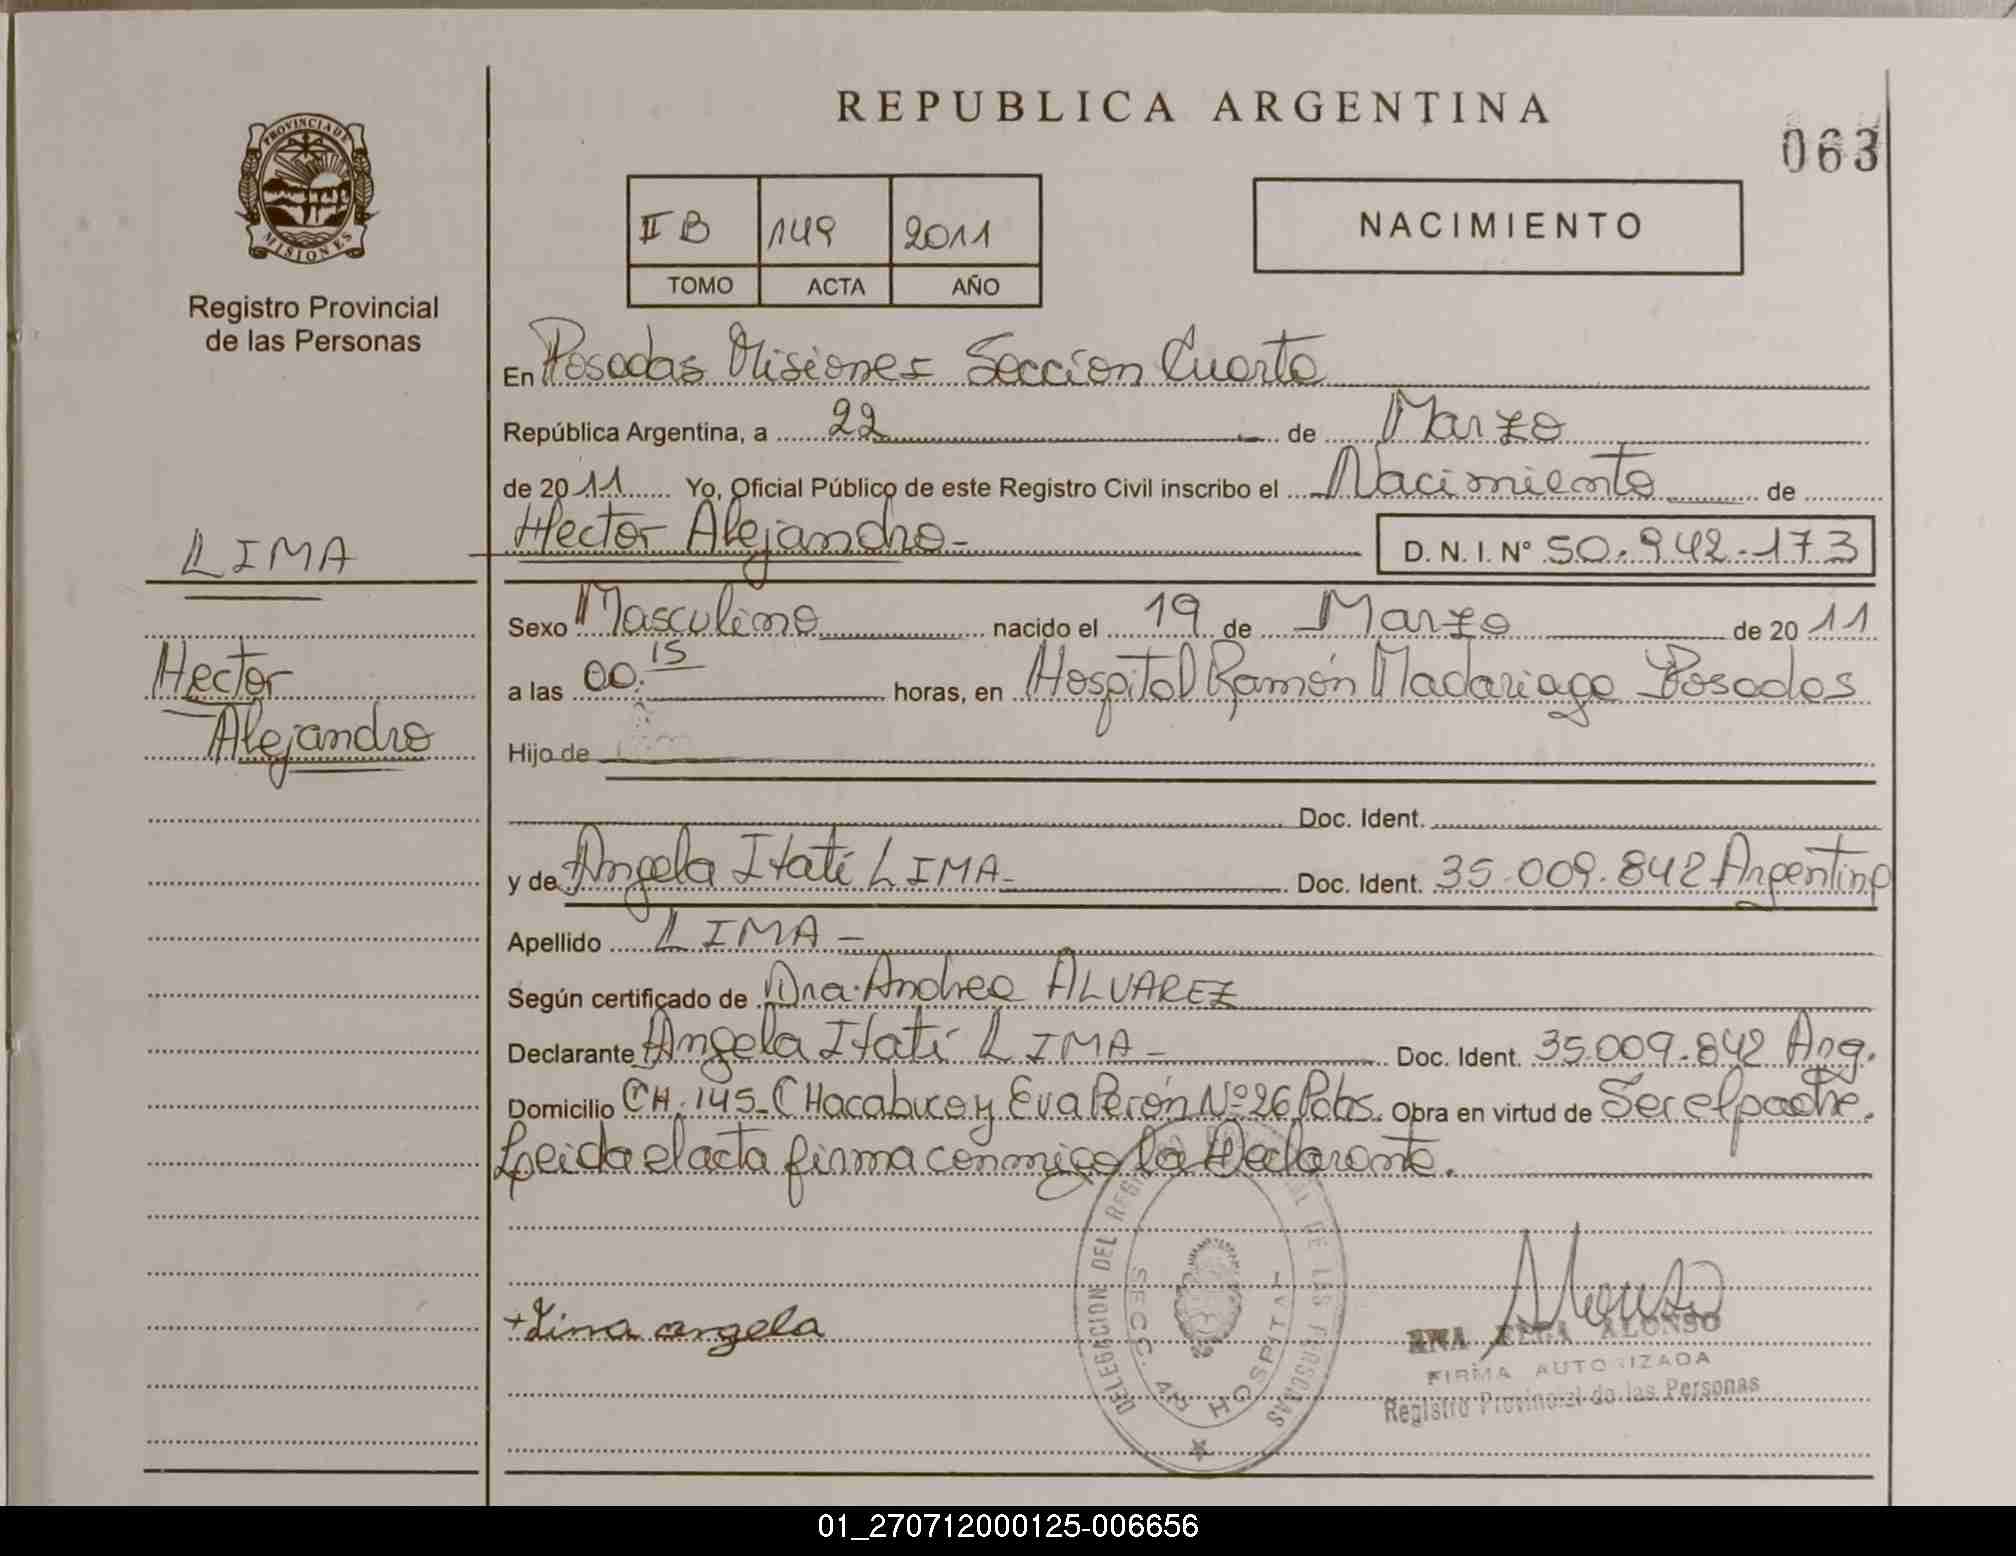 REPUBLICA ARGENTINA
063
PROVINCIA DE
MISIONES
Registro Provincial
de las Personas
II B 149 2011
TOMO ACTA AÑO
NACIMIENTO
En Posadas Misiones Seccion Cuarta
República Argentina, a 22 de Marzo
de 2011 Yo, Oficial Público de este Registro Civil inscribo el Nacimiento de
Hector Alejandro- D. N. I. N° 50.942.173
LIMA
Hector
Alejandro
Sexo Masculino nacido el 19 de Marzo de 2011
a las 00.15 horas, en Hospital Ramón Madariaga Posadas
Hijo de
Doc. Ident.
y de Angela Itatí LIMA- Doc. Ident. 35.009.842 Argentina
Apellido LIMA-
Según certificado de Dra. Andrea ALVAREZ
Declarante Angela Itatí LIMA- Doc. Ident. 35.009.842 Arg.
Domicilio CH. 145- CHacabuco y Eva Perón Nº 26 Pdas. Obra en virtud de
Leida el acta firma conmigo la Declarante.
DELEGACION DEL DE LAS PERSONAS
SECC. HOSPITAL
+Lima angela
Alonso
ALONSO
FIRMA AUTORIZADA
Registro Provincial de las Personas
01_270712000125-006656